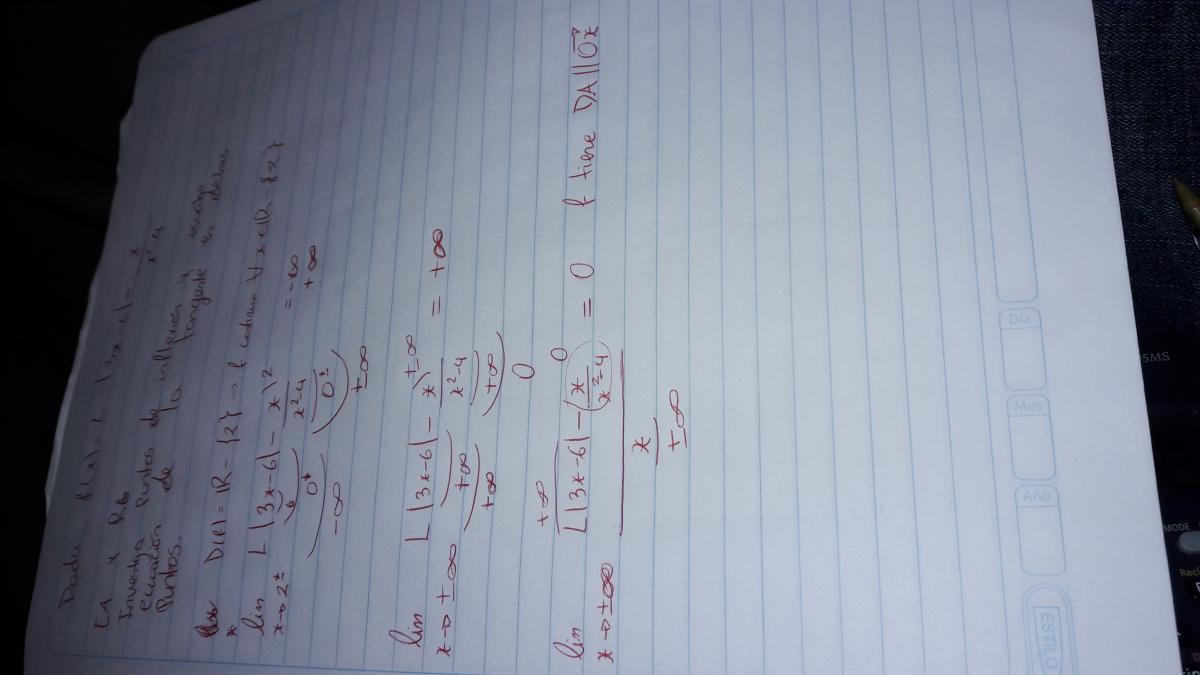 Dada f(x) = L |3x-6| - x/(x²-4)
EA y RG
Investiga puntos de inflexión y escribe
ecuación de la tangente en dichos
Puntos.
D(f) = R - {2} → f continua ∀ x ∈ R - {2}
lim x→2± L |3x-6| - x/(x²-4) = -∞ +∞
6 2 0⁺ 0± -∞ ±∞
lim x→±∞ L |3x-6| - x/(x²-4) = +∞
+∞ +∞ ±∞ +∞ 0
lim x→±∞ (L |3x-6| - (x/(x²-4)))/x = 0 f tiene DA || Ox
+∞ 0 ±∞
ESTILO
Año
Mes
Día
5MS
MODE